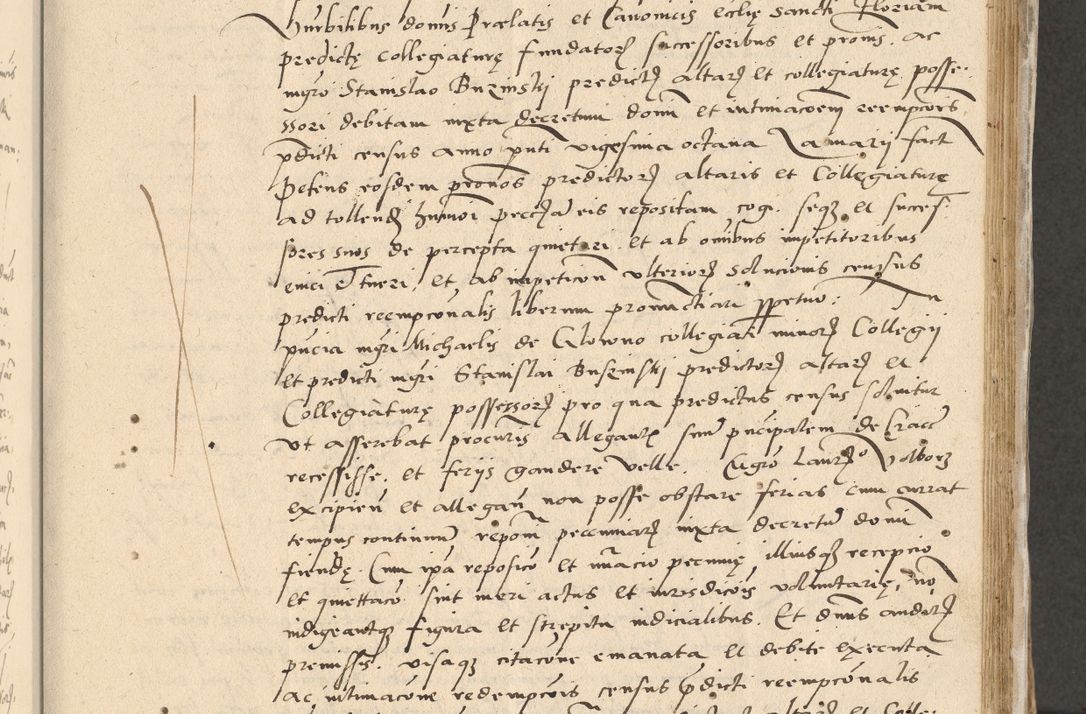 hu͞ibilibus domis Prælatis et Canonicis eccl̄ie sancti Floriani
predictę Collegiaturę fundatorꝫ successoribus et proms. ac
mgro Stanislao Buzinskij predictꝫ altarꝫ et collegiaturę posse-
ssori debitam iuxta decretum domi et intimacoem reempcois
pdicti census anno pnti vigesima octaua Ianuarij fact
Petens eosdem promos predictorꝫ altaris et Collegiaturę
ad tollendꝫ hmoi pecc͞iā eis repositam cogi. seqꝫ et succes
sores suos de percepta quietari. et ab omibus impetitoribus
euici et tueri, et ab impeticon vlteriorꝫ solucionis census
predicti reempconalis liberum pronunctiari ppetuo: In
pncia mgri Michaelis de Clowno collegiati minorꝫ Collegij
et predicti mgri Stanislai Buszinskij predictorꝫ altarꝫ et
Collegiaturę possessorꝫ pro qua predictus census soluitur
vt asserebat procuris allegantꝫ suū pncipalem de Crac
recessisse. et ferijs gaudere velle. Mgro Laurꝫo Wolborꝫ
excipien et allegan non posse obstare ferias cum currat
tempus continuū repom pecuniarꝫ iuxta decretū domi
fiendę. Cum ipa reposicō et nuacio pecunię, illiusqꝫ recepcio
et quiettaco. sint meri actus et iurisdicois voluntarię, nō
indigeantqꝫ figura et strepitu iudicialibus. Et dnus auditorꝫ
premissis. visaqꝫ citacone emanata et debite executa
ac intimacone redempcois census pdicti reempconalis